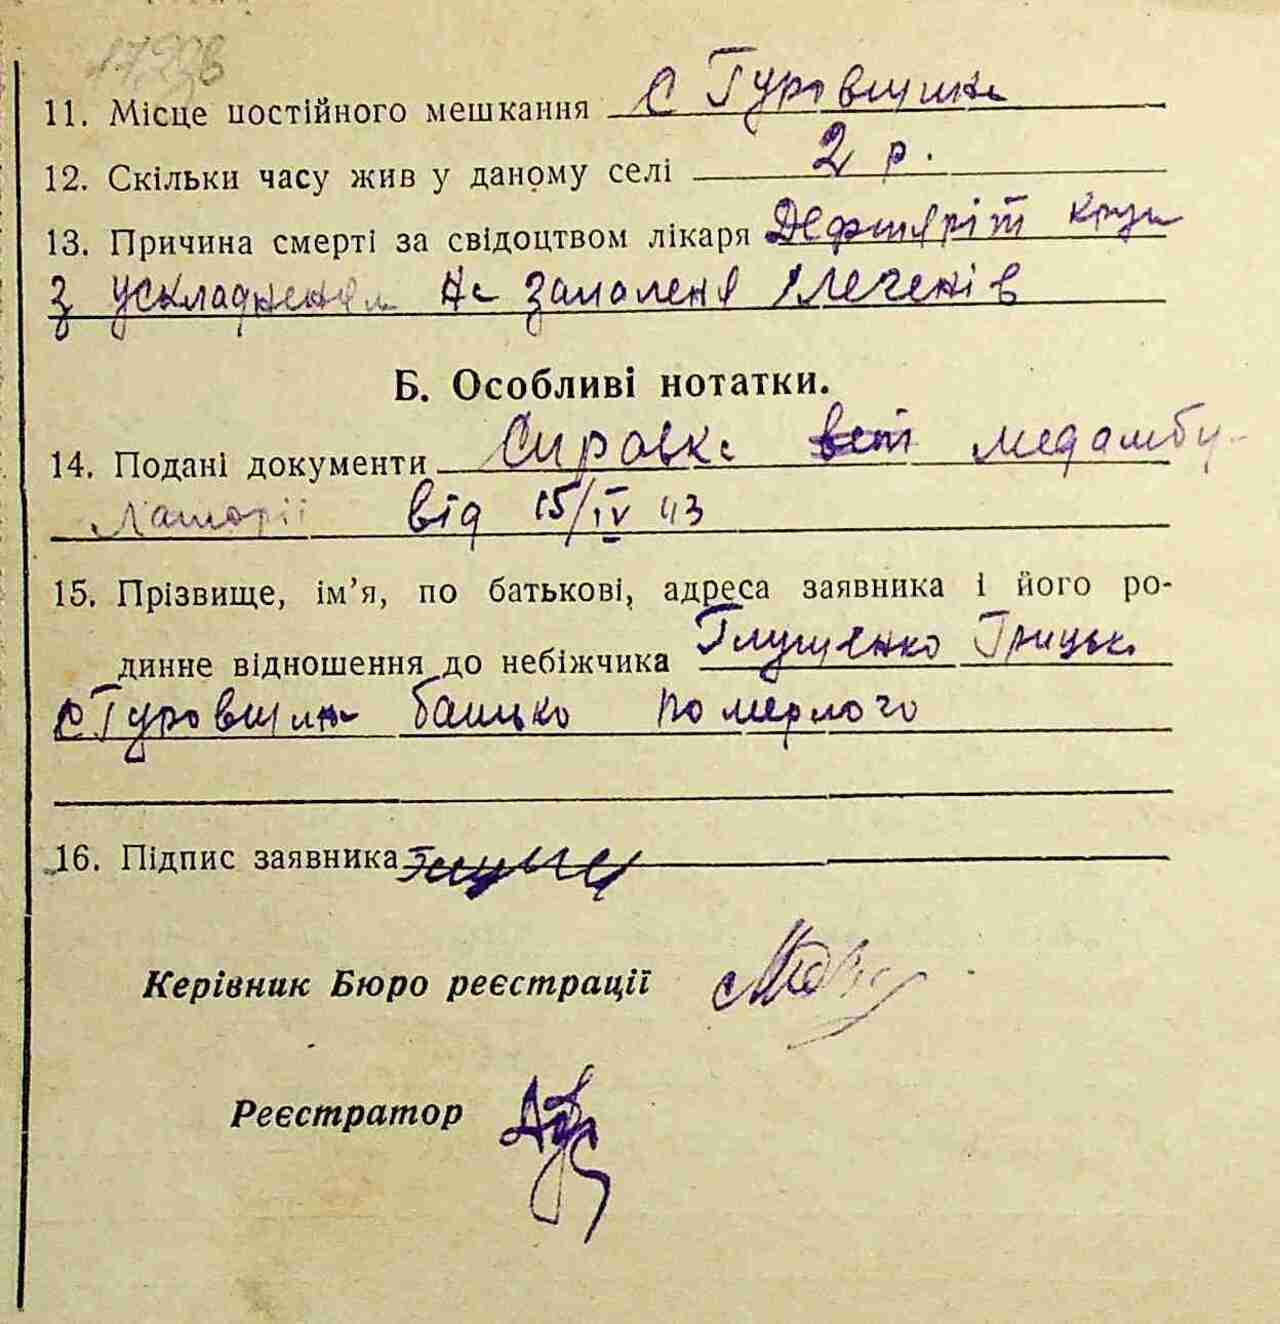 11. Місце постійного мешкання с Гуровщина
12. Скільки часу жив у даному селі 2 р.
13. Причина смерті за свідоцтвом лікаря Дефтеріт круп
з ускладненям на запаленя легенів
Б. Особливі нотатки.
14. Подані документи Справка медамбу-
латорії від 15/IV 43
15. Прізвище, ім’я, по батькові, адреса заявника і його ро-
динне відношення до небіжчика Глущенко Грицько
с Гуровщина батько померлого
16. Підпис заявника
Керівник Бюро реєстрації
Реєстратор